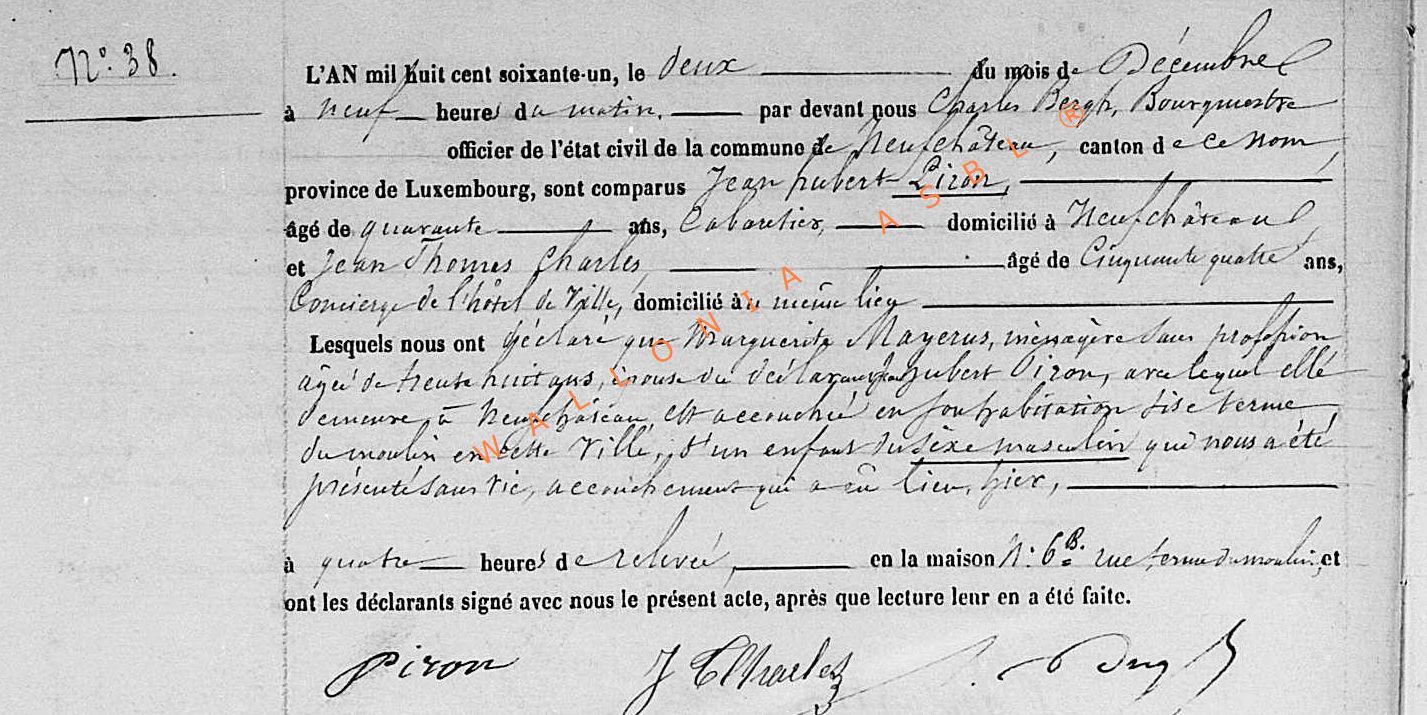 N° 38.
L'AN mil huit cent soixante-un, le deux du mois de Décembre
à neuf heures du matin, par devant nous Charles Bergh, Bourgmestre
officier de l'état civil de la commune de Neufchâteau, canton de ce nom,
province de Luxembourg, sont comparus Jean hubert Piron,
âgé de quarante ans, Cabaretier, domicilié à Neufchâteau,
et Jean Thomas Charles, âgé de Cinquante quatre ans,
Concierge de l'hôtel de Ville, domicilié à le même lieu
Lesquels nous ont déclaré que Marguerite Mayerus, ménagère sans profession
âgée de trente huit ans, épouse du déclarant hubert Piron, avec lequel elle
demeure à Neufchâteau, est accouchée en son habitation sise terme
du moulin en cette Ville, d'un enfant du sexe masculin qui nous a été
présenté sans vie, accouchement qui a eû lieu, hier,
à quatre heures de relevée, en la maison N: 6B. rue terme du moulin, et
ont les déclarants signé avec nous le présent acte, après que lecture leur en a été faite.
Piron J T Charles
WALLONIA ASBL ®